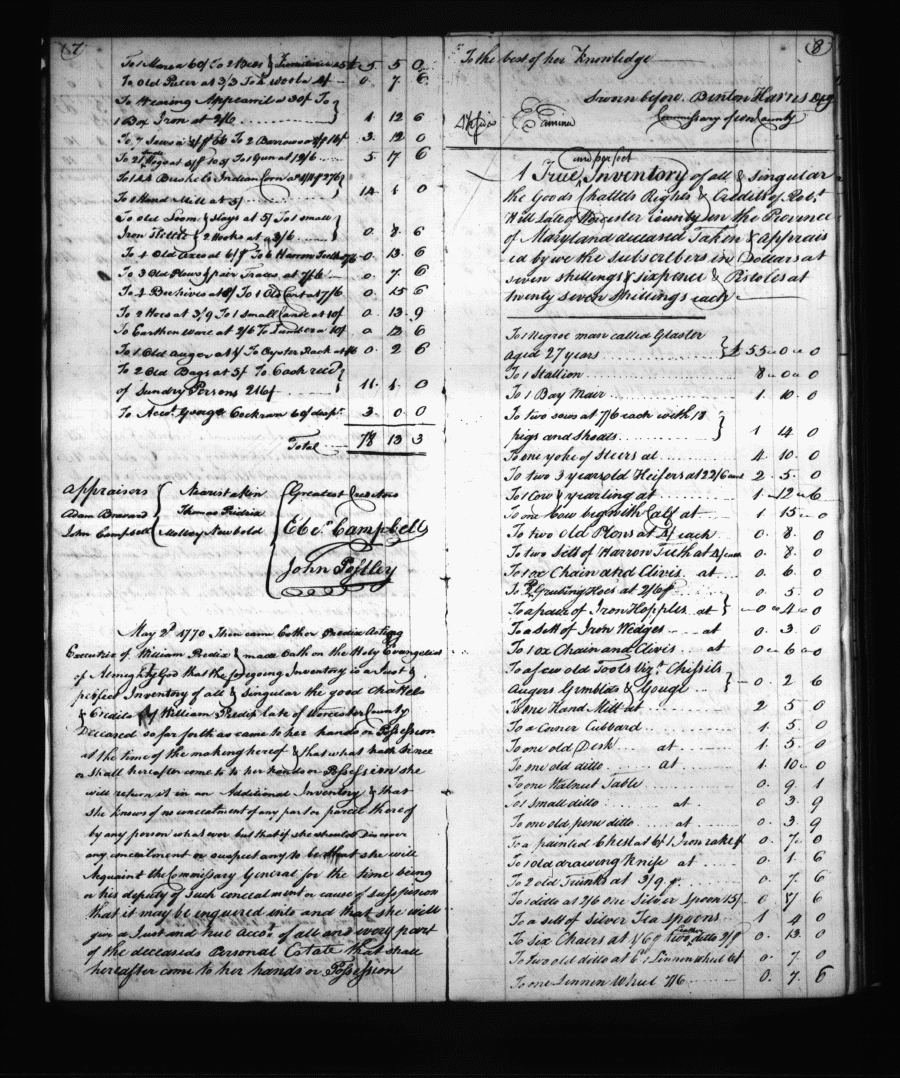 7
To 1 Mare a 60/ To 2 Beds & Furniture a 5 5 0
To Old Puter at 3/3 To Wool a 4/ 0 7 6
To Wearing Apparril a 30/ To
1 Box Iron at 2/6 1 12 6
To 7 Sows a To 2 Barrows 3 12 0
To 21 Hogs at To 1 Gun at 12/6 5 17 6
To Bushels Indian Corn a
To 1 Hand Mill at 5/ 14 1 0
To old Loom & Slays at 5/ To 1 small
Iron Kittle & 2 Hooks at a 3/6 0 8 6
To 4 Old Axes at 6/ To 6 Harrow Teeth 0 13 6
To 3 Old Plows & pair Traces at 7/6 0 7 6
To 4 Beehives at To 1 Old Cart at 7/6 0 15 6
To 2 Hoes at 3/9 To 1 Small Canoe at 10/ 0 13 9
To Earthen ware at 2/6 To Lumber a 10/ 0 12 6
To 1 Old Auger at To Oyster Rack at 0 2 6
To 2 Old Bags at 5/ To Cash recd
of Sundry Persons 216/ 11 1 0
To Acct. George Cochran 60/ 3 0 0
Total 78 13 3
Appraisors Nearest a Kin Greatest Creditors
Adam Bravard Thomas Pridix Ebe. Campbell
John Campbell Molley Newbold John Postley
May 2d. 1770. Then came Esther Predix Acting
Executrix of William Predix & made Oath on the Holy Evangelist
of Almighty God that the foregoing Inventory is a Just &
perfect Inventory of all & Singular the good chattels
& Credits of William Predix late of Worcester County
Deceased so far forth as came to her hands or Possession
at the time of the making hereof & that what hath since
or Shall hereafter come to to her hands or Possession she
will return it in an Additional Inventory & that
she knows of no concealment of any part or parcel thereof
by any person whatsover but that if she should Discover
any concealment or suspect any to be that she will
Acquaint the Commissary General for the time being
or his deputy of such concealment or cause of suspission
that it may be inquired into and that she will
give a Just and true Acct. of all and every part
of the deceaseds Personal Estate that shall
hereafter come to her hands or Possession
8
To the best of her Knowledge
Sworn before. Benton Harris Dpy
Commissary of Wor County
Examind
and perfect
A True Inventory of all & singular
the Goods Chattles Rights & Credits of Robt.
Hill Late of Worcester County in the Province
of Maryland deceased Taken & Apprais
ed by we the Subscribers in Dollars at
seven shillings & sixpence & Pistoles at
twenty seven shillings each
To 1 Negroe man called Glaster
aged 27 years £ 55 0 0
To 1 Stallion 8 0 0
To 1 Bay Mair 1 10 0
To two sows at 7/6 each with 18
pigs and shoats 1 14 0
To one yoke of Steers at 4 10 0
To two 3 year old Heifers at 22/6 each 2 5 0
To 1 Cow & yearling at 1 12 6
To one Cow big with Calf at 1 15 0
To two old Plows at 4/ each 0 8 0
To two setts of Harrow Teeth at 4/ each 0 8 0
To 1 ox Chain and Clivis at 0 6 0
To 2 Grubing Hoes at 2/6 0 5 0
To a pair of Iron Hopples at 0 4 0
To a sett of Iron Wedges at 0 3 0
To 1 ox Chain and Clivis at 0 6 0
To a few old Tools Vizt. Chissils
Augers Gimblds & Gouge 0 2 6
To one Hand Mill at 2 5 0
To a Corner Cubbard 1 5 0
To one old Desk at 1 5 0
To one old ditto at 1 10 0
To one Walnut Table 0 9 1
To 1 small ditto at 0 3 9
To one old pine ditto at 0 3 9
To a painted Chest at 6/ 1 Iron rake 0 7 0
To 1 old drawing Knife at 0 1 6
To 2 old Trunks at 3/9 0 7 6
To 1 ditto at 2/6 one Silver Spoon 15/ 0 17 6
To a sett of Silver Tea spoons 1 4 0
To six Chairs at two other ditto 0 13 0
To two old ditto at 1 Linnen Wheel 0 7 0
To one Linnen Wheel 7/6 0 7 6